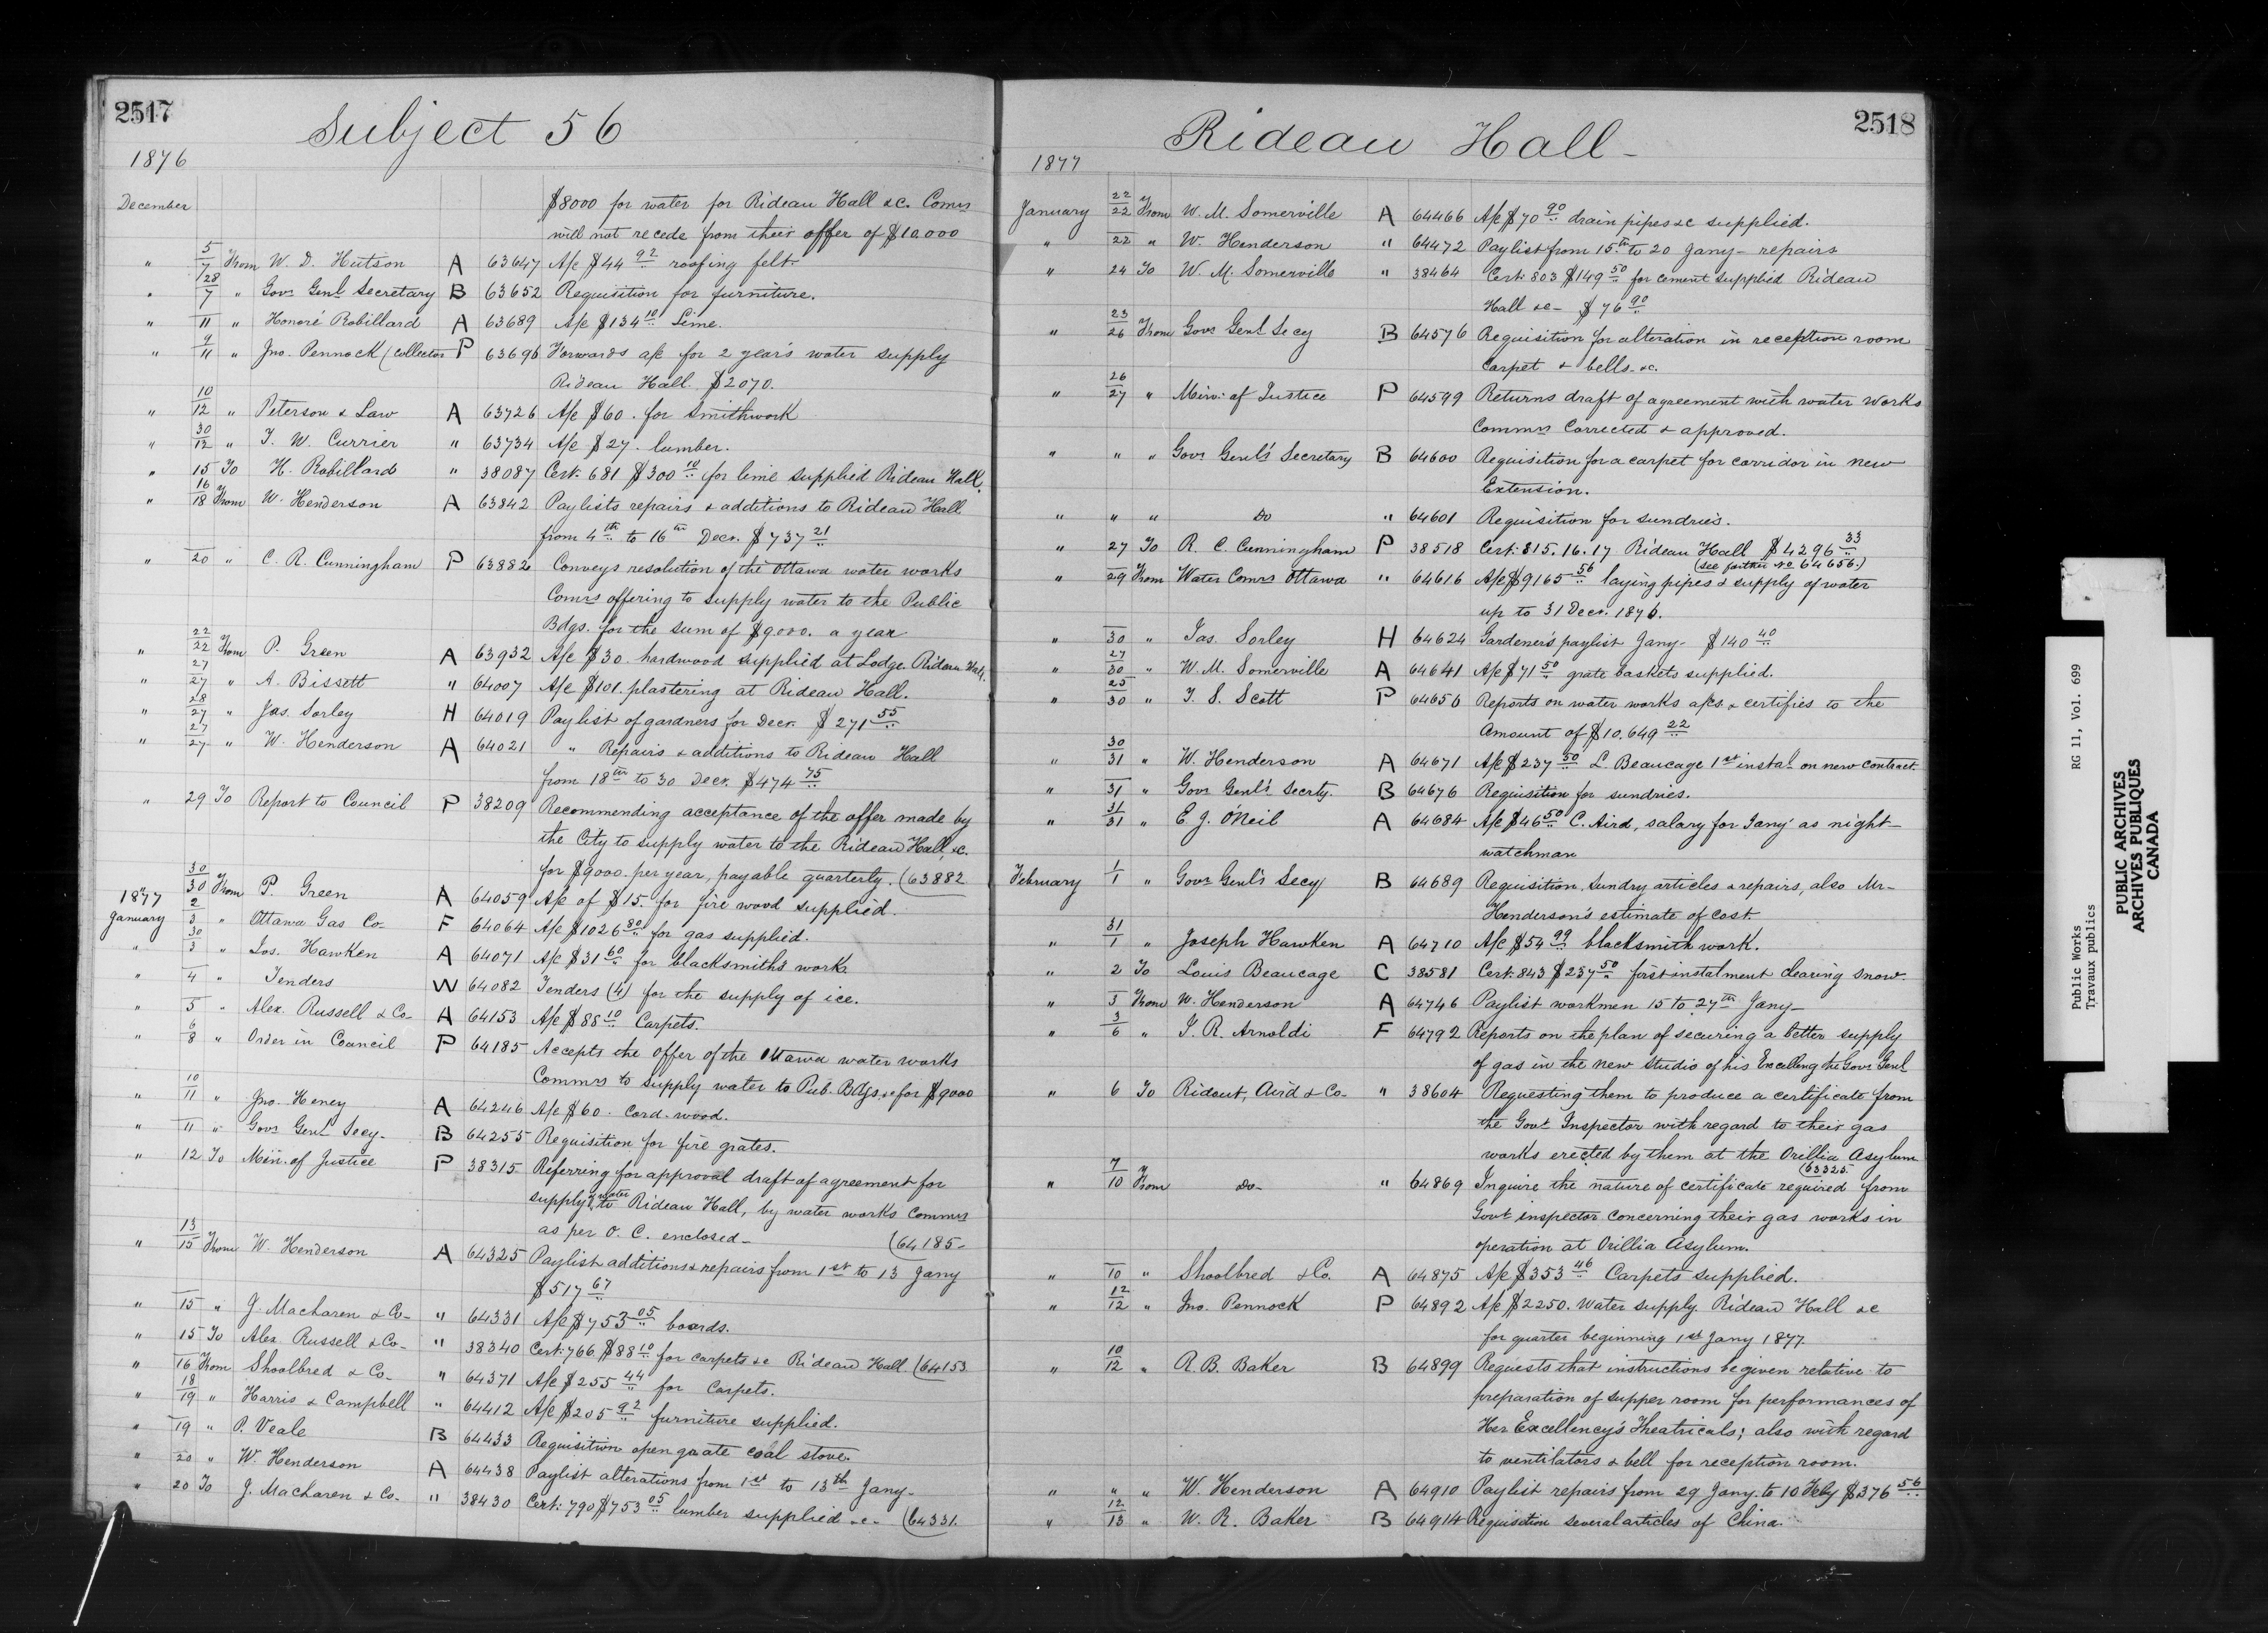 2517
Subject 56
1876
December $8000 for water for Rideau Hall &c. Comrs
will not recede from their offer of $10.000
" 5/7 From W. D. Hutson A 63647 A/c $44 92 roofing felt
" 28/7 " Govr Genl Secretary B 63652 Requisition for furniture.
" 11 " Honoré Robillard A 63689 A/c $134 10 Lime.
" 9/11 " Jno. Pennock (Collector P 63696 Forwards a/c for 2 year's water supply
Rideau Hall. $2070.
" 10/12 " Peterson & Law A 63726 A/c $60. for Smithwork
" 30/12 " T. W. Currier " 63734 A/c $27. lumber.
" 15 To H. Robillard " 38087 Cert. 681 $300 10 for lime supplied Rideau Hall.
" 16/18 From W. Henderson A 63842 Paylists repairs & additions to Rideau Hall
from 4th to 16th Decr. $737 21
" 20 " C. R. Cunningham P 63882 Conveys resolution of the Ottawa water works
Comrs offering to supply water to the Public
Bdgs. for the sum of $9000. a year
" 22/22 From P. Green A 63932 A/c $30. hardwood supplied at Lodge Rideau Hall.
" 27/27 " A. Bissett " 64007 A/c $101. plastering at Rideau Hall.
" 28/27 " Jas. Sorley H 64019 Paylist of gardners for Decr. $271 55
" 27/27 " W. Henderson A 64021 " Repairs & additions to Rideau Hall
from 18th to 30 Decr. $474 75
" 29 To Report to Council P 38209 Recommending acceptance of the offer made by
the City to supply water to the Rideau Hall, &c.
for $9000. per year, payable quarterly. (63882
" 30/30 From P. Green A 64059 A/c of $15. for fire wood supplied.
1877
January 2/3 " Ottawa Gas Co- F 64064 A/c $1026 80 for gas supplied.
" 30/3 " Jos. Hawken A 64071 A/c $31 60 for blacksmith's work
" 4 " Tenders W 64082 Tenders (4) for the supply of ice.
" 5 " Alex. Russell & Co- A 64153 A/c $88 10 Carpets.
" 6/8 " Order in Council P 64185 Accepts the offer of the Ottawa water works
Commrs to supply water to Pub. Bdgs. &c for $9000
" 10/11 " Jno. Heney A 64246 A/c $60. Cord-wood.
" 11 " Govr Genl Secy- B 64255 Requisition for fire grates.
" 12 To Min. of Justice P 38315 Referring for approval draft of agreement for
supply water to Rideau Hall, by water works Commrs
as per O. C. enclosed- (64185-
" 13/15 From W. Henderson A 64325 Paylist additions & repairs from 1st to 13 Jany
$517 67
" 15 " J. MacLaren & Co- " 64331 A/c $753 05 boards.
" 15 To Alex. Russell & Co- " 38340 Cert: 766 $88 10 for carpets &c Rideau Hall. (64153
" 16 From Shoolbred & Co- " 64371 A/c $255 44 for Carpets.
" 18/19 " Harris & Campbell " 64412 A/c $205 92 furniture supplied.
" 19 " P. Veale B 64433 Requisition open grate coal stove
" 20 " W. Henderson A 64438 Paylist alterations from 1st to 13th Jany-
" 20 To J. MacLaren & Co- " 38430 Cert: 790 $753 05 lumber supplied &c- (64331.
2518
Rideau Hall-
1877
January 22/22 From W. M. Somerville A 64466 A/c $70 90 drain pipes &c supplied.
" 22 " W. Henderson " 64472 Paylist from 15th to 20 Jany- repairs
" 24 To W. M. Somerville " 38464 Cert: 803 $149 50 for cement supplied Rideau
Hall &c- $76 90
" 23/26 From Govr Genl Secy B 64576 Requisition for alteration in reception room
carpet & bells &c.
" 26/27 " Min: of Justice P 64599 Returns draft of agreement with water works
Commrs Corrected & approved.
" " " Govr Genl's Secretary B 64600 Requisition for a carpet for corridor in new
Extension.
" " " Do " 64601 Requisition for sundries.
" 27 To R. C. Cunningham P 38518 Cert: 815. 16. 17 Rideau Hall $4296 33
(see further No 64656.)
" 29 From Water Comrs Ottawa " 64616 A/c $9165 56 laying pipes & supply of water
up to 31 Decr. 1876.
" 30 " Jas. Sorley H 64624 Gardener's paylist Jany- $140 40
" 27/30 " W. M. Somerville A 64641 A/c $71 50 grate baskets supplied.
" 25/30 " T. S. Scott P 64656 Reports on water works a/cs. & certifies to the
Amount of $10.649 22
" 30/31 " W. Henderson A 64671 A/c $237 50 L. Beaucage 1st instal- on new contract.
" 31 " Govr Genl's Secrty. B 64676 Requisition for sundries.
" 31/31 " E. J. O'Neil A 64684 A/c $46 50 C. Aird, salary for Jany' as night-
watchman
February 1/1 " Govr Genl's Secy B 64689 Requisition, Sundry articles & repairs, also Mr-
Henderson's estimate of cost
" 31/1 " Joseph Hawken A 64710 A/c $54 99 blacksmith work.
" 2 To Louis Beaucage C 38581 Cert: 843 $237 50 first instalment clearing snow.
" 3 From W. Henderson A 64746 Paylist workmen 15 to 27th Jany-
" 3/6 " J. R. Arnoldi F 64792 Reports on the plan of securing a better supply
of gas in the new studio of his Excellency the Govr Genl
" 6 To Ridout, Aird & Co- " 38604 Requesting them to produce a certificate from
the Govt Inspector with regard to their gas
works erected by them at the Orillia Asylum
(63325
" 7/10 From do- " 64869 Inquire the nature of certificate required from
Govt inspector concerning their gas works in
operation at Orillia Asylum.
" 10 " Shoolbred & Co. A 64875 A/c $353 46 Carpets supplied.
" 12/12 " Jno. Pennock P 64892 A/c $2250. Water supply Rideau Hall &c
for quarter beginning 1st Jany 1877.
" 10/12 " R. B. Baker B 64899 Requests that instructions be given relative to
preparation of supper room for performances of
Her Excellency's Theatricals; also with regard
to ventilators & bell for reception room.
" " " W. Henderson A 64910 Paylist repairs from 29 Jany. to 10 Feby $376 56
" 12/13 " W. R. Baker B 64914 Requisition several articles of China.
Public Works RG 11, Vol. 699
Travaux publics
PUBLIC ARCHIVES
ARCHIVES PUBLIQUES
CANADA